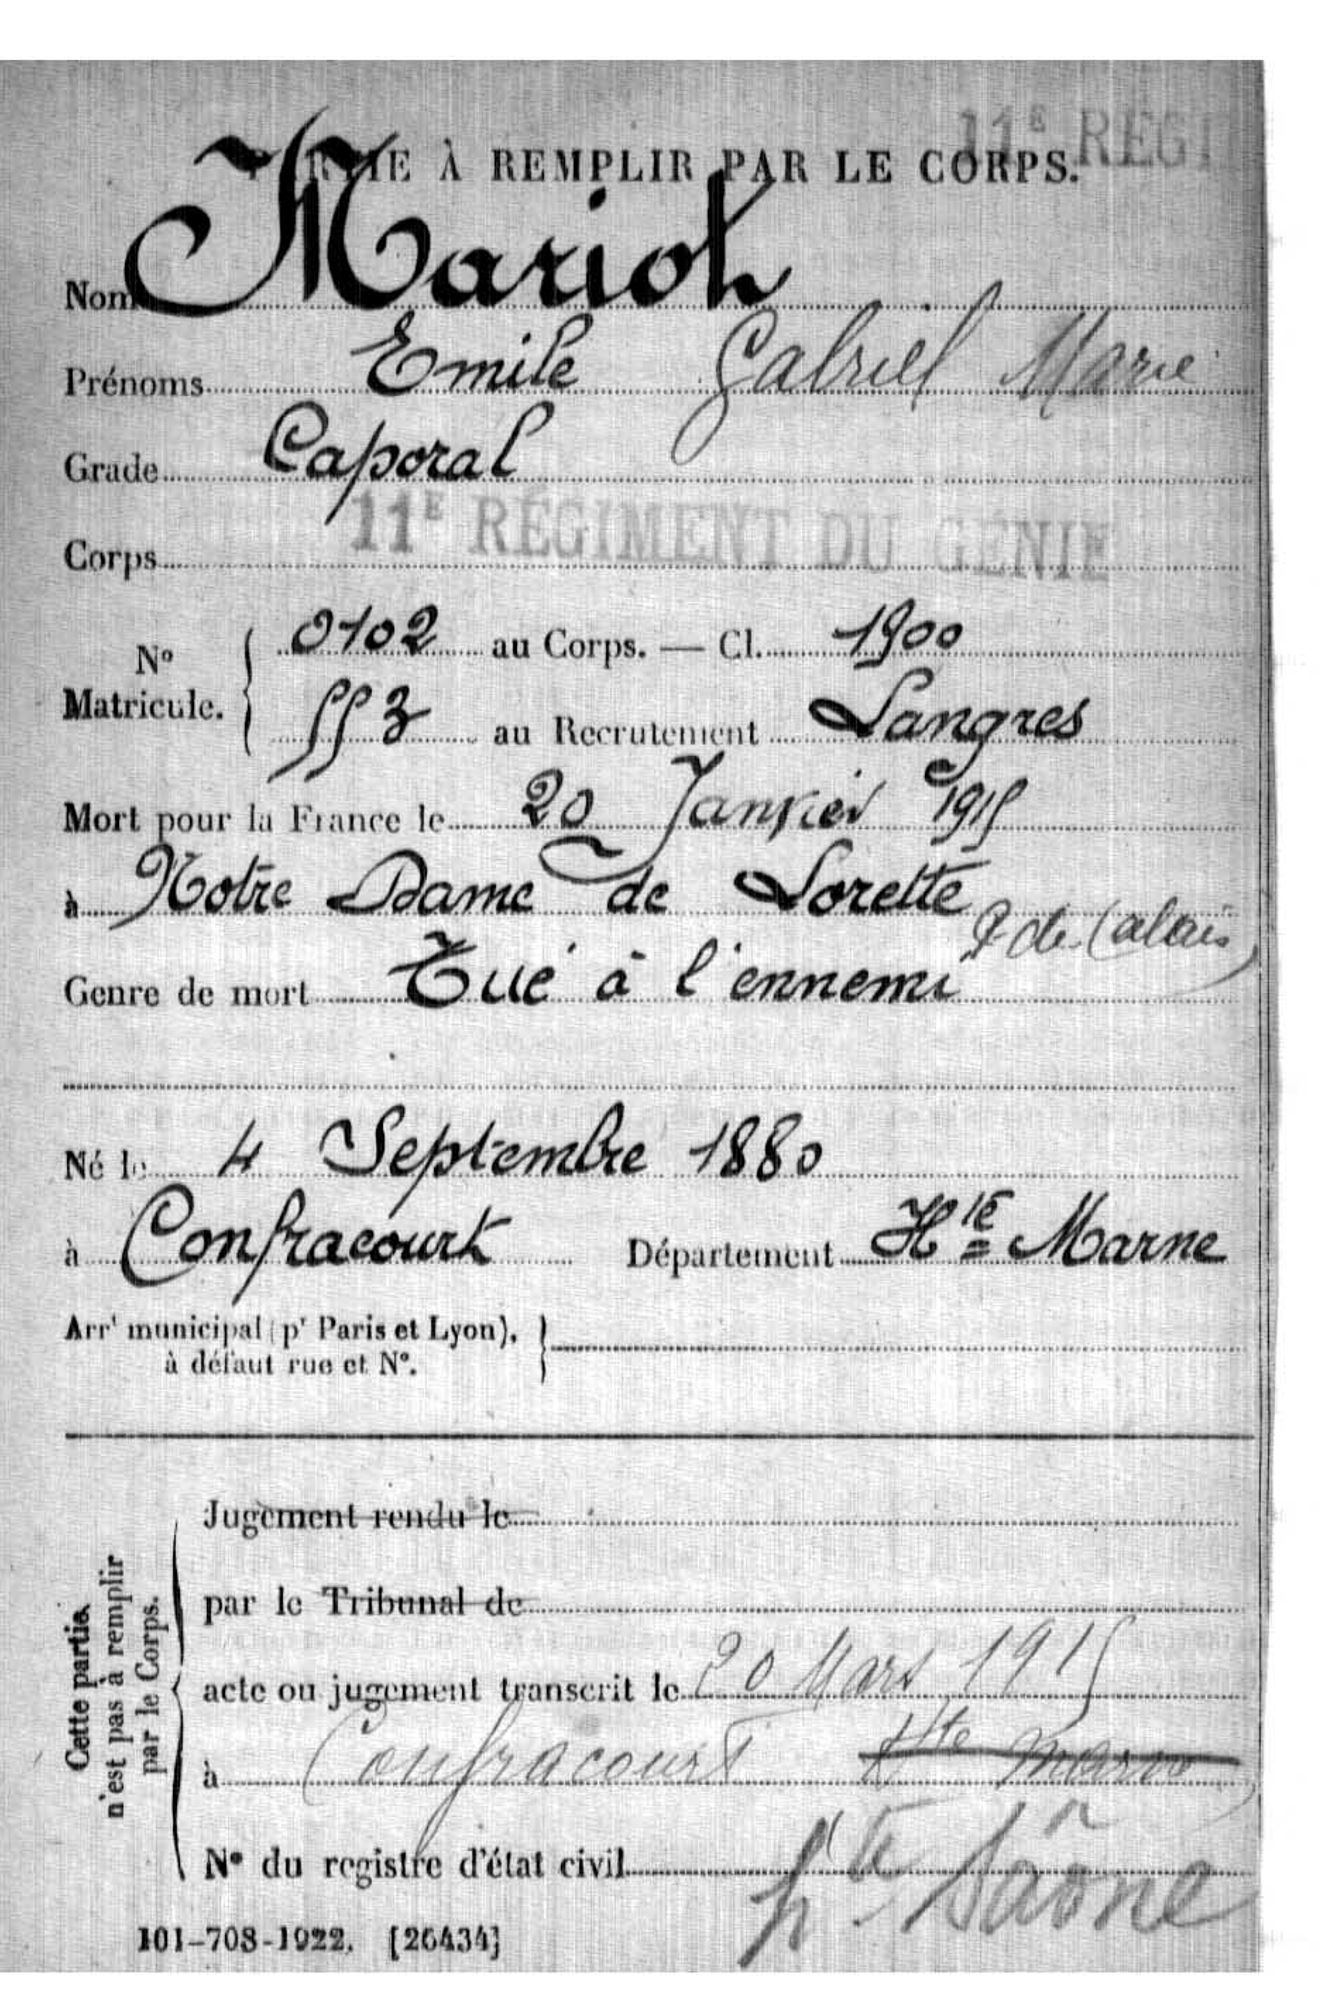 11E REGI
PARTIE À REMPLIR PAR LE CORPS.
Nom Mariot
Prénoms Emile Gabriel Marie
Grade Caporal
Corps 11E RÉGIMENT DU GÉNIE
No Matricule. { 0102 au Corps. — Cl. 1900
553 au Recrutement Langres
Mort pour la France le 20 Janvier 1915
à Notre Dame de Lorette P de Calais
Genre de mort Tué à l'ennemi
Né le 4 Septembre 1880
à Confracourt Département Hte Marne
Arrt municipal (pr Paris et Lyon), }
à défaut rue et N°.
Cette partie
n'est pas à remplir
par le Corps.
Jugement rendu le
par le Tribunal de
acte ou jugement transcrit le 20 Mars 1915
à Confracourt Hte Marne
N° du registre d'état civil
hte Saône
101-708-1922. [26434]